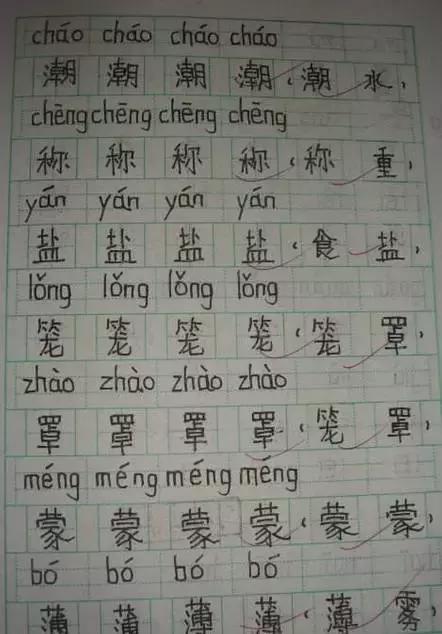 cháo cháo cháo cháo
潮 潮 潮 潮(潮 水)
chēng chēng chēng chēng
称 称 称 称(称 重)
yán yán yán yán
盐 盐 盐 盐(食 盐)
lǒng lǒng lǒng lǒng
笼 笼 笼 笼(笼 罩)
zhào zhào zhào zhào
罩 罩 罩 罩(笼 罩)
méng méng méng méng
蒙 蒙 蒙 蒙(蒙 蒙)
bó bó bó bó
薄 薄 薄 薄(薄 雾